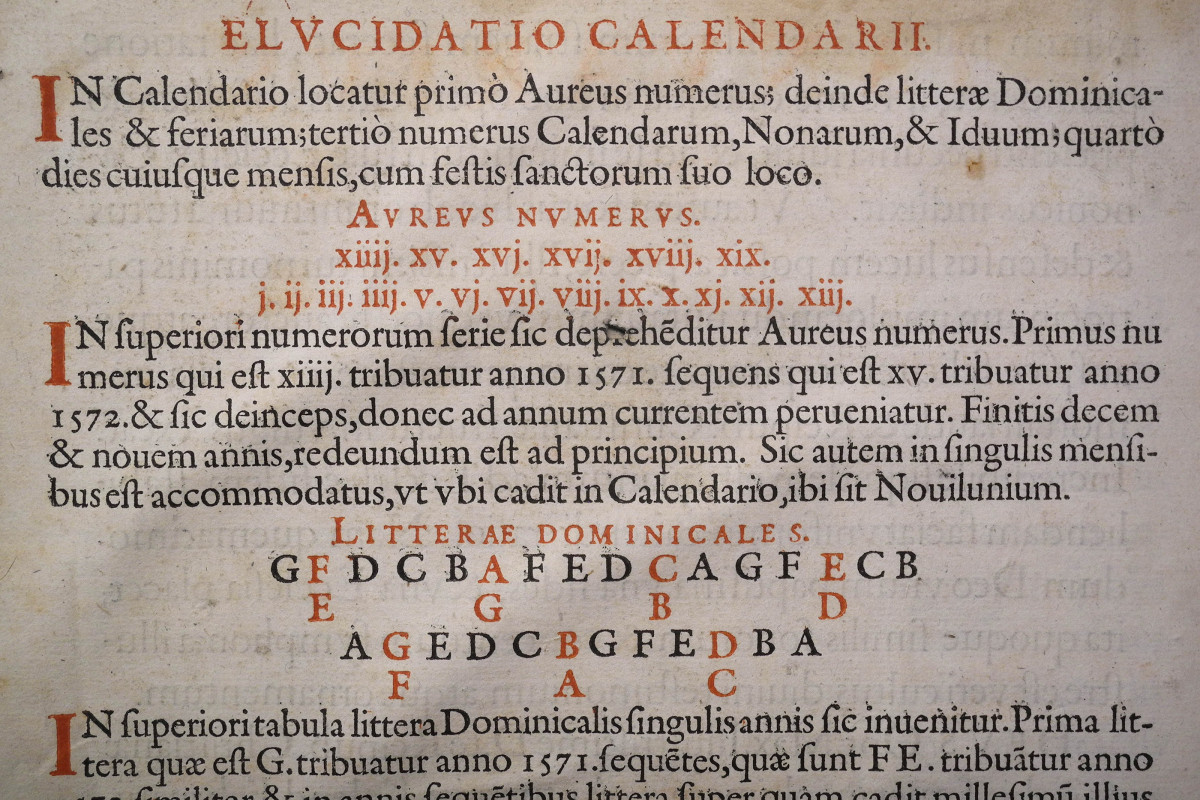 ELVCIDATIO CALENDARII.
IN Calendario locatur primò Aureus numerus; deinde litteræ Dominica-
les & feriarum; tertiò numerus Calendarum, Nonarum, & Iduum; quartò
dies cuiuſque menſis, cum feſtis ſanctorum ſuo loco.
AVREVS NVMERVS.
xiiij. xv. xvj. xvij. xviij. xix.
j. ij. iij. iiij. v. vj. vij. viij. ix. x. xj. xij. xiij.
IN ſuperiori numerorum ſerie ſic deprehēditur Aureus numerus. Primus nu
merus qui eſt xiiij. tribuatur anno 1571. ſequens qui eſt xv. tribuatur anno
1572. & ſic deinceps, donec ad annum currentem perueniatur. Finitis decem
& nouem annis, redeundum eſt ad principium. Sic autem in ſingulis menſi-
bus eſt accommodatus, vt vbi cadit in Calendario, ibi ſit Nouilunium.
LITTERAE DOMINICALES.
G F D C B A F E D C A G F E C B
E G B D
A G E D C B G F E D B A
F A C
IN ſuperiori tabula littera Dominicalis ſingulis annis ſic inuenitur. Prima lit-
tera quæ eſt G. tribuatur anno 1571. ſequētes, quæ ſunt F E. tribuātur anno
ſimiliter & in annis ſequētibus littera ſuper quam cadit milleſimū illius